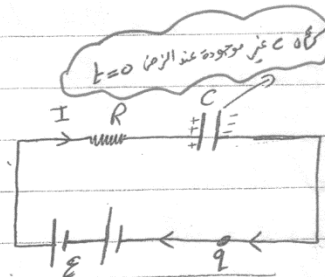 غير موجودة عند الزمن t=0
I R C
+ + + - - -
ε q